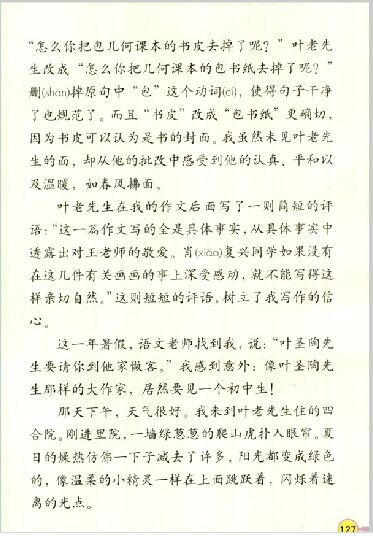 “怎么你把包几何课本的书皮去掉了呢？”叶老先
生改成“怎么你把几何课本的包书纸去掉了呢？”
删(shān)掉原句中“包”这个动词(cí)，使得句子干净
了也规范了。而且“书皮”改成“包书纸”更确切，
因为书皮可以认为是书的封面。我虽然未见叶老先
生的面，却从他的批改中感受到他的认真、平和以
及温暖，如春风拂面。
叶老先生在我的作文后面写了一则简短的评
语：“这一篇作文写的全是具体事实，从具体事实中
透露出对王老师的敬爱。肖(xiāo)复兴同学如果没有
在这几件有关画画的事上深受感动，就不能写得这
样亲切自然。”这则短短的评语，树立了我写作的信
心。
这一年暑假，语文老师找到我，说：“叶圣陶先
生要请你到他家做客。”我感到意外：像叶圣陶先
生那样的大作家，居然要见一个初中生！
那天下午，天气很好。我来到叶老先生住的四
合院。刚进里院，一墙绿葱葱的爬山虎扑入眼帘。夏
日的燥热仿佛一下子减去了许多，阳光都变成绿色
的，像温柔的小精灵一样在上面跳跃着，闪烁着迷
离的光点。
127